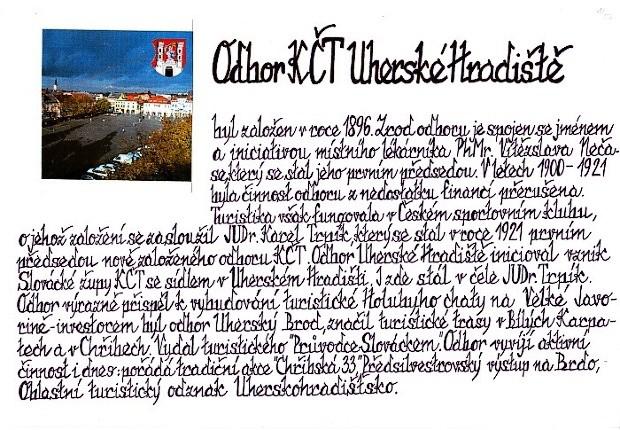 Odbor KČT Uherské Hradiště
byl založen v roce 1896. Zrod odboru je spojen se jménem
a iniciativou místního lékárníka PhMr. Vítězslava Neča-
se, který se stal jeho prvním předsedou. V letech 1900-1921
byla činnost odboru z nedostatku financí přerušena.
Turistika však fungovala v Českém sportovním klubu,
o jehož založení se zasloužil JUDr. Karel Trpík, který se stal v roce 1921 prvním
předsedou nově založeného odboru KČT. Odbor Uherské Hradiště inicioval vznik
Slovácké župy KČT se sídlem v Uherském Hradišti. I zde stál v čele JUDr. Trpík.
Odbor výrazně přispěl k vybudování turistické Holubyho chaty na Velké Javo-
řině-investorem byl odbor Uherský Brod, značil turistické trasy v Bílých Karpa-
tech a v Chřibech. Vydal turistického "Průvodce Slováckem". Odbor vyvíjí aktivní
činnost i dnes: pořádá tradiční akce Chřibská 33, Předsilvestrovský výstup na Brdo,
Oblastní turistický odznak Uherskohradišťsko.